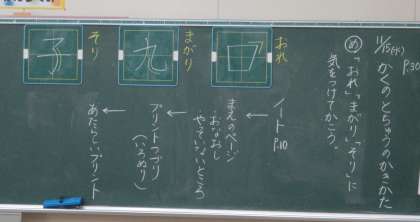 11/15(水)
かくのとちゅうのかきかた
P30
め「おれ」「まがり」「そり」に
気をつけてかこう。
おれ
口
まがり
九
そり
子
ノート
P10
←
まえのページ
おなおし
やっていないところ
←
プリントつづり
(いろぬり)
←
あたらしいプリント